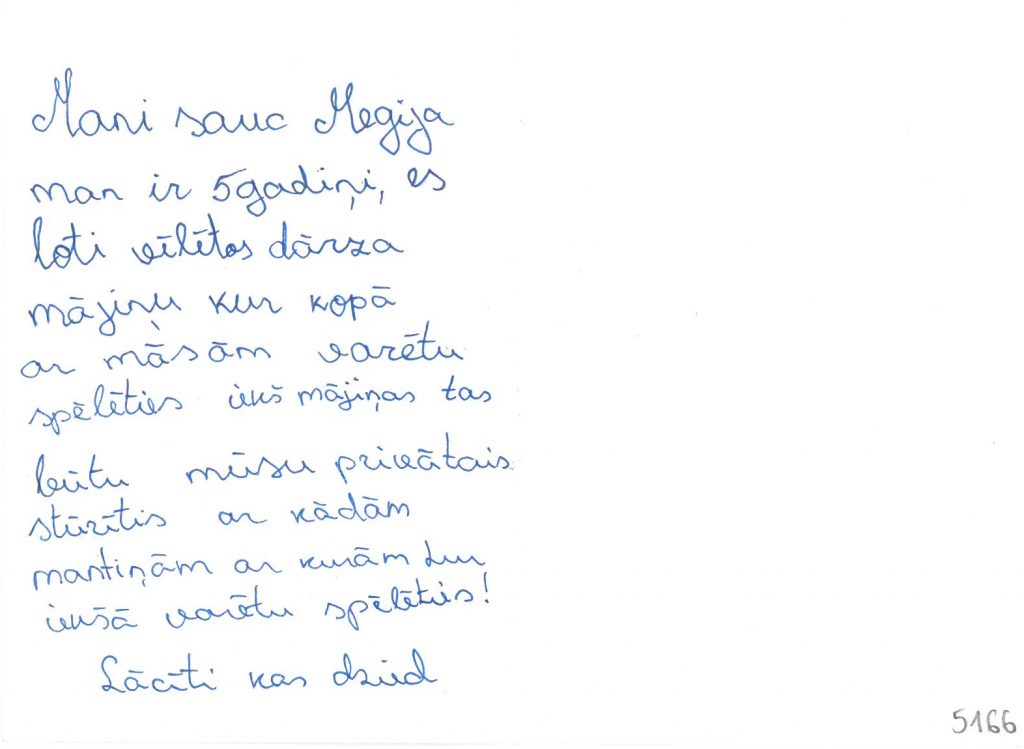 Mani sauc Megija
man ir 5gadiņi, es
ļoti vēlētos dārza
mājiņu kur kopā
ar māsām varētu
spēlēties iekš mājiņas tas
būtu mūsu privātais
stūrītis ar kādām
mantiņām ar kurām tur
iekšā varētu spēlēties!
Lācīti kas dzied
5166